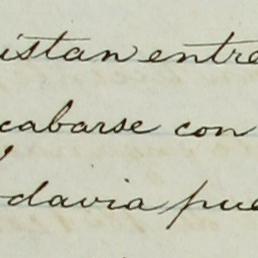 istan entre
cabarse con
odavia pue